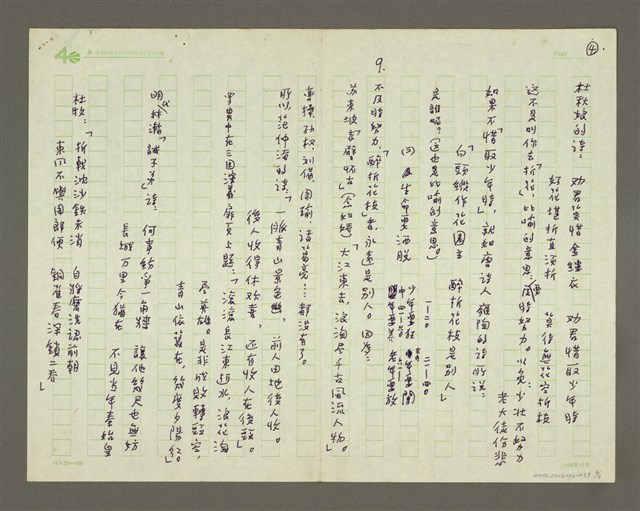 ④
杜秋娘的詩： 勸君莫惜金縷衣 勸君惜取少年時
好花堪折直須折 莫待無花空折枝
這不是叫你去「折花」，比喻的意思，要及時努力。以免少壯不努力 老大徒傷悲
如果不「惜取少年時」，就如唐詩人雍陶的詩所說：
「白頭縱作花園主 醉折花枝是別人」
是誰呢？（這也是比喻的意思。）
(三) 人生需要洒脫
一－二〇 二一－四〇
9.
不及時努力，「醉折花枝」者，永遠是別人。因為：
蘇東坡「赤壁懷古」（念奴嬌）「大江東去，浪淘尽千古風流人物。」
曹操、孙权、刘備、周瑜、諸葛亮…都沒有了。
所以，范仲淹的詩：「一脈青山景色幽，前人田地後人收。
後人收得休欢喜，还有收人在後頭。」
罗貫中在三国演義扉頁上題：「滚滚長江東逝水，浪花淘
尽英雄。是非成敗轉頭空，
青山依旧在，幾度夕陽紅。」
明代林瀚「誡子弟」詩： 何事紛爭一角牆 讓他幾尺也無妨
長城万里今猶在 不見当年秦始皇
杜牧：「折戟沈沙鉄未消 自將磨洗認前朝
東風不與周郎便 銅雀春深鎖二喬」